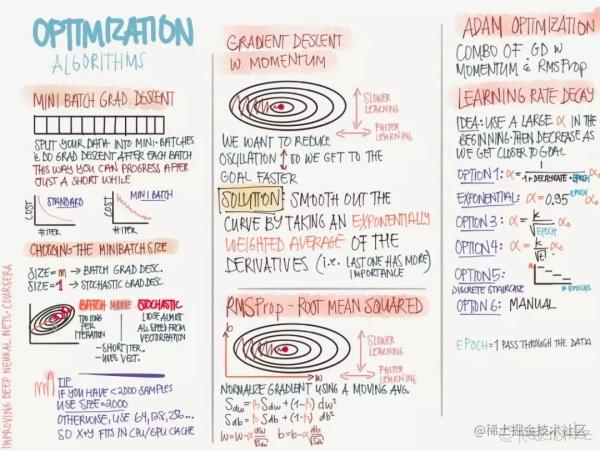 OPTIMIZATION
ALGORITHMS
MINI BATCH GRAD. DESCENT
SPLIT YOUR DATA INTO MINI-BATCHES
& DO GRAD DESCENT AFTER EACH BATCH
THIS WAY YOU CAN PROGRESS AFTER
JUST A SHORT WHILE
COST
STANDARD
# ITER
COST
MINI BATCH
# ITER
CHOOSING THE MINIBATCH SIZE
SIZE=m → BATCH GRAD DESC.
SIZE=1 → STOCHASTIC GRAD DESC
BATCH
TOO LONG
PER
ITERATION
MIDDLE
STOCHASTIC
LOSE ALMOST
ALL SPEED FROM
VECTORIZATION
-SHORT ITER.
-USES VECT.
TIP
IF YOU HAVE <2000 SAMPLES
USE SIZE=2000
OTHERWISE, USE 64, 128, 256...
SO X+Y FITS IN CPU/GPU CACHE
IMPROVING DEEP NEURAL NETS · COURSERA
GRADIENT DESCENT
W. MOMENTUM
SLOWER
LEARNING
FASTER
LEARNING
WE WANT TO REDUCE
OSCILLATION ↕ SO WE GET TO THE
GOAL FASTER
SOLUTION: SMOOTH OUT THE
CURVE BY TAKING AN EXPONENTIALLY
WEIGHTED AVERAGE OF THE
DERIVATIVES (i.e. LAST ONE HAS MORE)
IMPORTANCE
RMSProp - ROOT MEAN SQUARED
b
w
SLOWER
LEARNING
FASTER
LEARNING
NORMALIZE GRADIENT USING A MOVING AVG.
Sdw = β Sdw + (1-β) dw²
Sdb = β Sdb + (1-β) db²
w = w-α dw/√Sdw b = b-α db/√Sdb
ADAM OPTIMIZATION
COMBO OF GD W
MOMENTUM & RMSProp
LEARNING RATE DECAY
IDEA: USE A LARGE α IN THE
BEGINNING · THEN DECREASE AS
WE GET CLOSER TO GOAL
OPTION 1: α = 1/(1+DECAYRATE·EPOCH)
EXPONENTIAL: α = 0.95^EPOCH α₀
OPTION 3: α = k/√EPOCH α₀
OPTION 4: α = k/√t α₀
OPTION 5:
DISCRETE STAIRCASE
EPOCHS
OPTION 6: MANUAL
EPOCH = 1 PASS THROUGH THE DATA
@稀土掘金技术社区